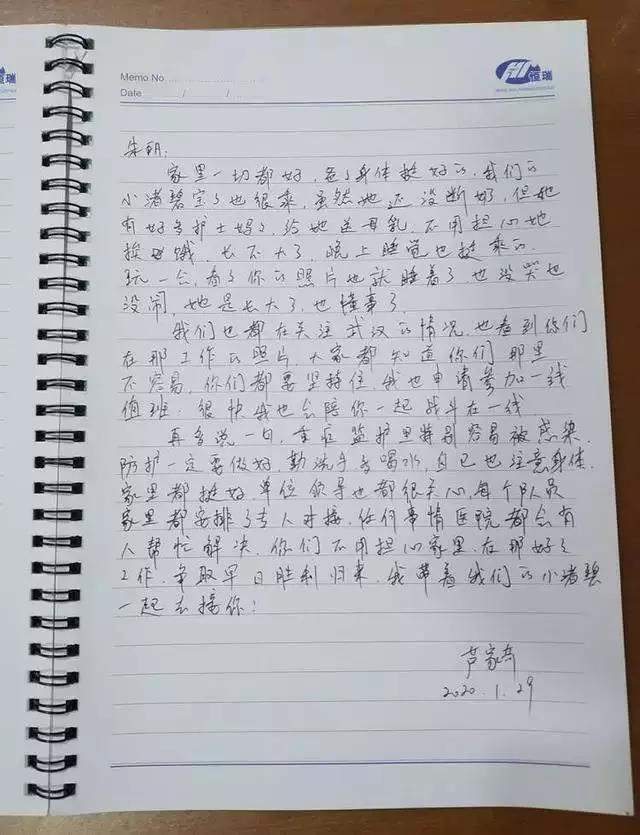 Memo No
Date / /
恒瑞
朱朝:
家里一切都好,爸爸身体挺好的,我们的
小渚碧宝宝也很乖,虽然她还没断奶,但她
有好多护士妈妈给她送母乳,不用担心她
挨饿,长不大了,晚上睡觉也挺乖的.
玩一会,看看你的照片也就睡着了,也没哭也
没闹,她是长大了,也懂事了.
我们也都在关注武汉的情况,也看到你们
在那工作的照片,大家都知道你们那里
不容易,你们都要坚持住,我也申请参加一线
值班.很快我也会陪你一起战斗在一线.
再多说一句,重症监护里特别容易被感染.
防护一定要做好,勤洗手多喝水,自己也注意身体.
家里都挺好,单位领导也都很关心,每个队员
家里都安排了专人对接,任何事情医院都会有
人帮忙解决,你们不用担心家里,在那好好
工作,争取早日胜利归来,我带着我们的小渚碧
一起去接你!
芦家奇
2020.1.29